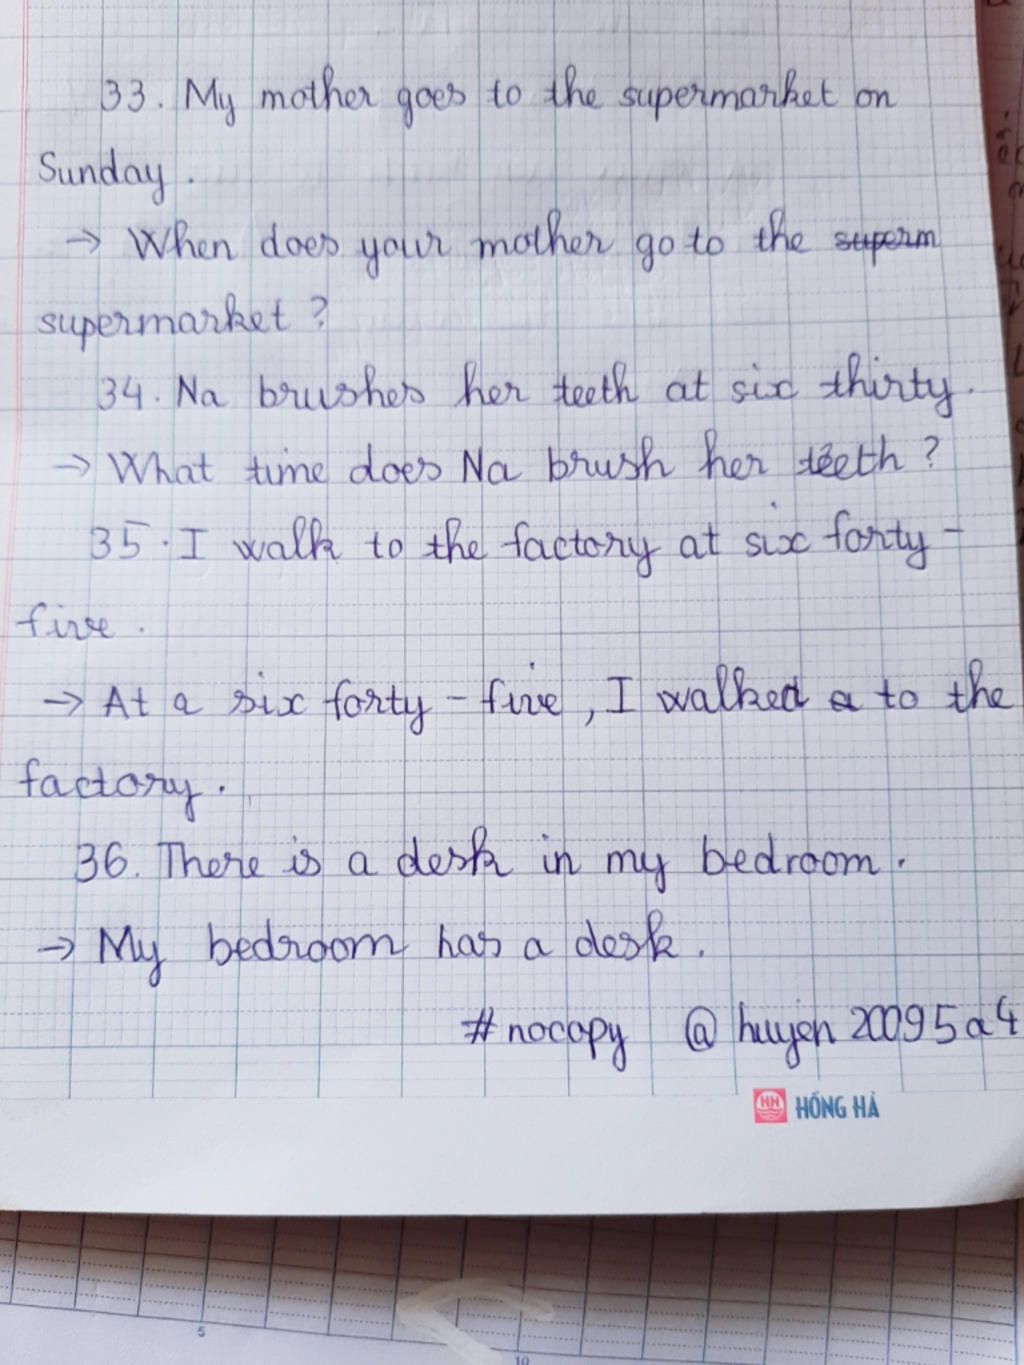 33. My mother goes to the supermarket on
Sunday.
→ When does your mother go to the superm
supermarket ?
34. Na brushes her teeth at six thirty.
→ What time does Na brush her teeth ?
35. I walk to the factory at six forty -
five.
→ At a six forty - five, I walked a to the
factory.
36. There is a desk in my bedroom.
→ My bedroom has a desk.
#nocopy @huyen20095a4
HH HỒNG HÀ
5
10